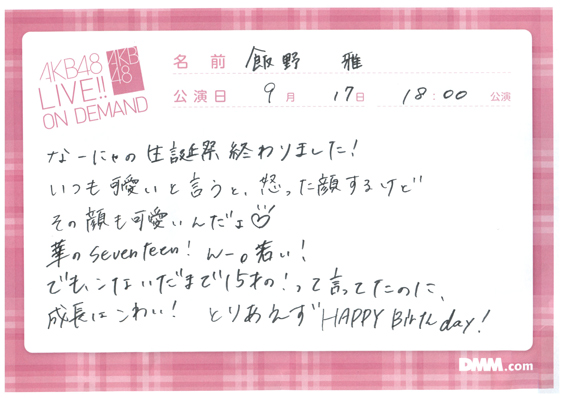 AKB48
LIVE!!
ON DEMAND
AKB
48
名前 飯野 雅
公演日 9月 17日 18:00 公演
なーにゃの生誕祭終わりました!
いつも可愛いと言うと、怒った顔するけど
その顔も可愛いんだよ♡
華のseventeen! んー。若い!
でも、こないだまで15才の!って言ってたのに、
成長はこわい! とりあえず HAPPY Birth day!
DMM.com